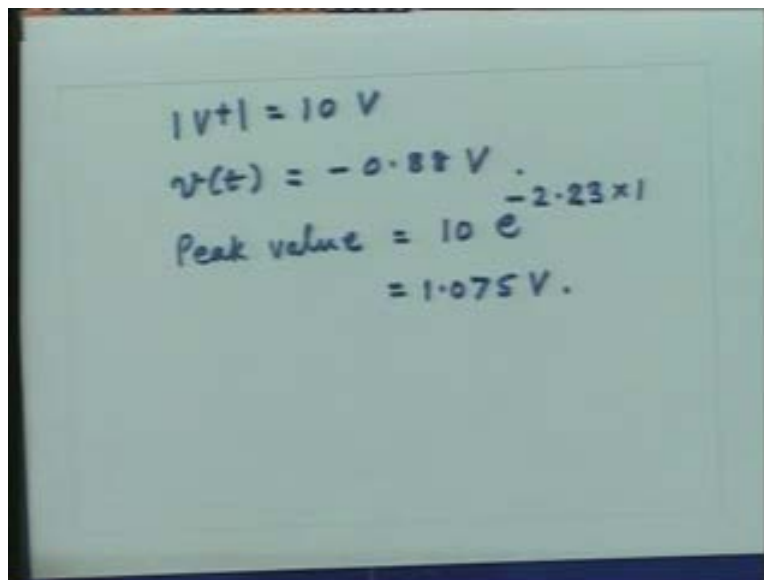 |V+| = 10 V
v(t) = - 0.88 V.
Peak value = 10 e^{-2.23×1}
= 1.075 V.